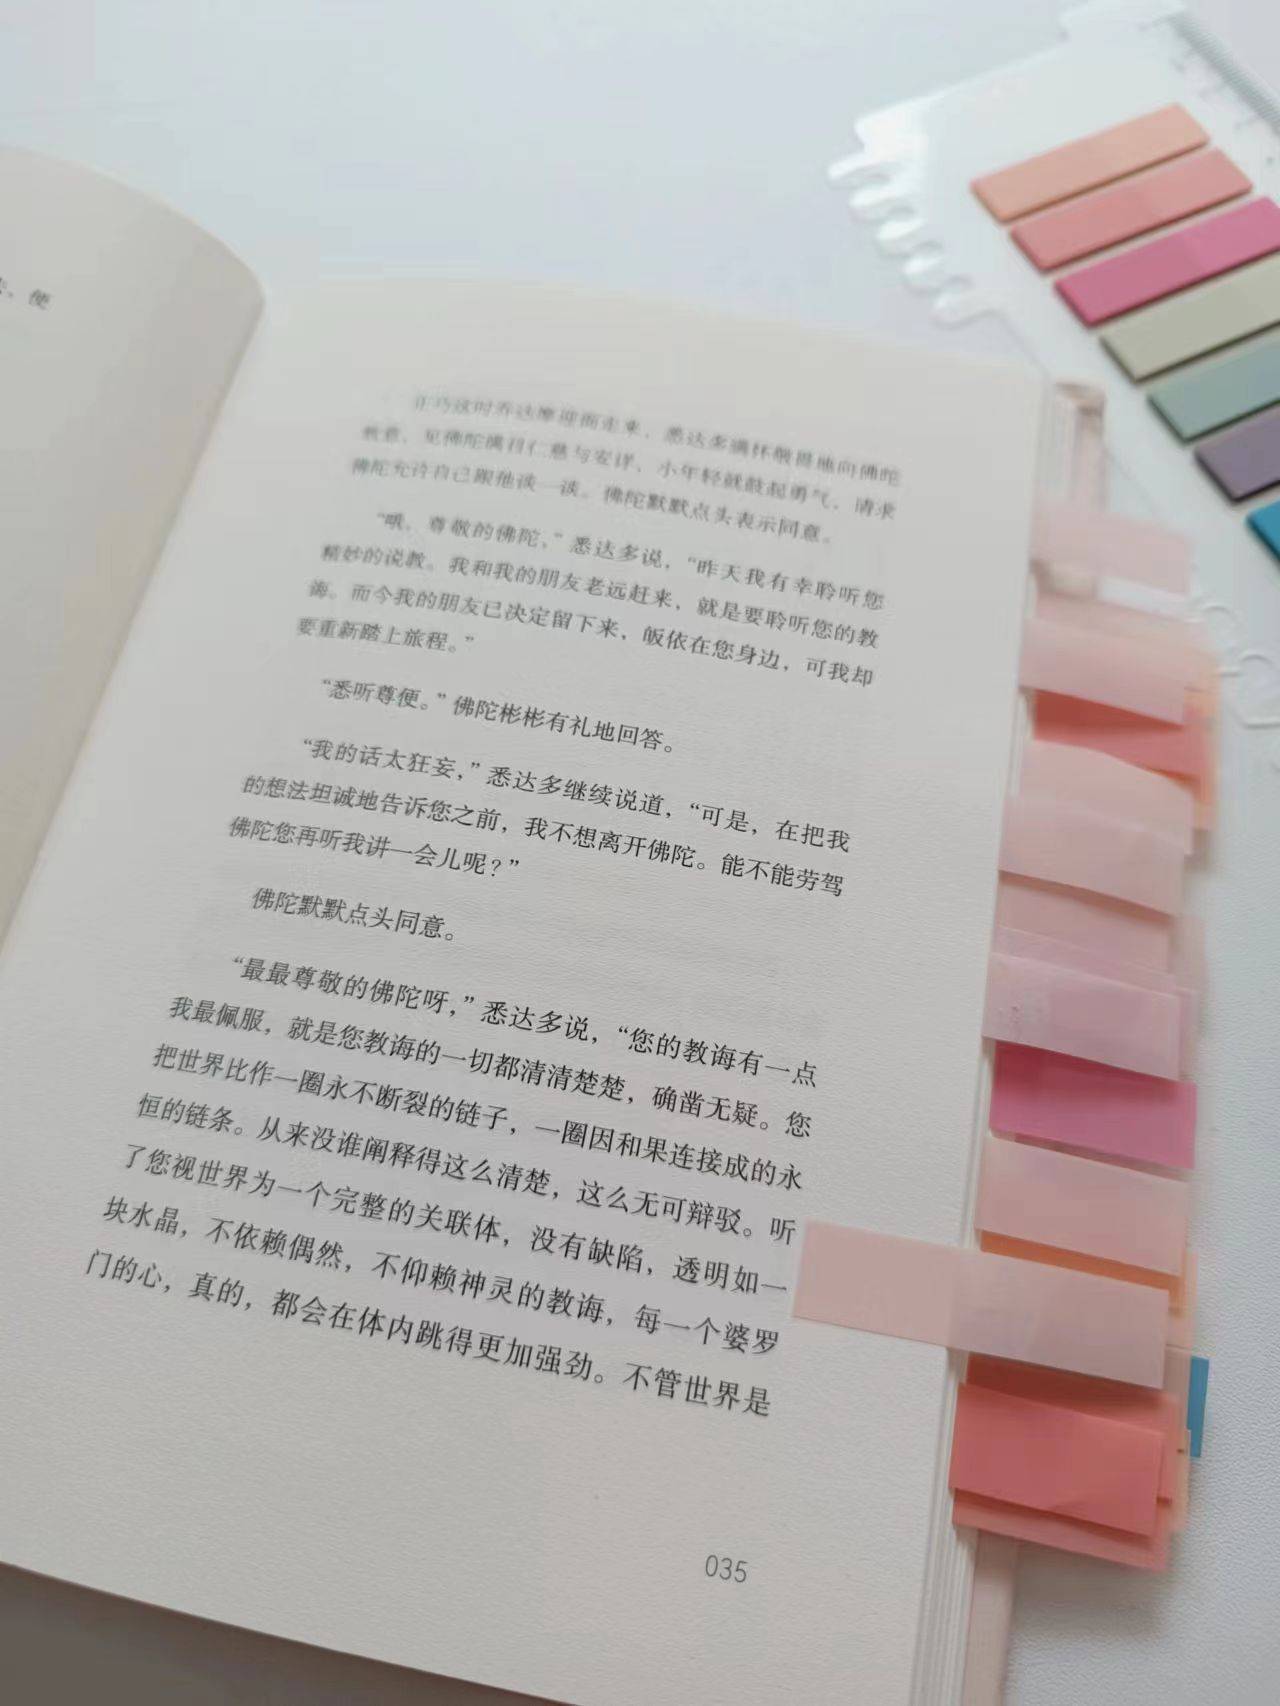 、使
正巧这时乔达摩迎面走来，悉达多满怀敬畏地向佛陀
致意，见佛陀满目仁慈与安详，小年轻就鼓起勇气，请求
佛陀允许自己跟他谈一谈。佛陀默默点头表示同意。
“哦，尊敬的佛陀，”悉达多说，“昨天我有幸聆听您
精妙的说教。我和我的朋友老远赶来，就是要聆听您的教
诲。而今我的朋友已决定留下来，皈依在您身边，可我却
要重新踏上旅程。”
“悉听尊便。”佛陀彬彬有礼地回答。
“我的话太狂妄，”悉达多继续说道，“可是，在把我
的想法坦诚地告诉您之前，我不想离开佛陀。能不能劳驾
佛陀您再听我讲一会儿呢？”
佛陀默默点头同意。
“最最尊敬的佛陀呀，”悉达多说，“您的教诲有一点
我最佩服，就是您教诲的一切都清清楚楚，确凿无疑。您
把世界比作一圈永不断裂的链子，一圈因和果连接成的永
恒的链条。从来没谁阐释得这么清楚，这么无可辩驳。听
了您视世界为一个完整的关联体，没有缺陷，透明如一
块水晶，不依赖偶然，不仰赖神灵的教诲，每一个婆罗
门的心，真的，都会在体内跳得更加强劲。不管世界是
035